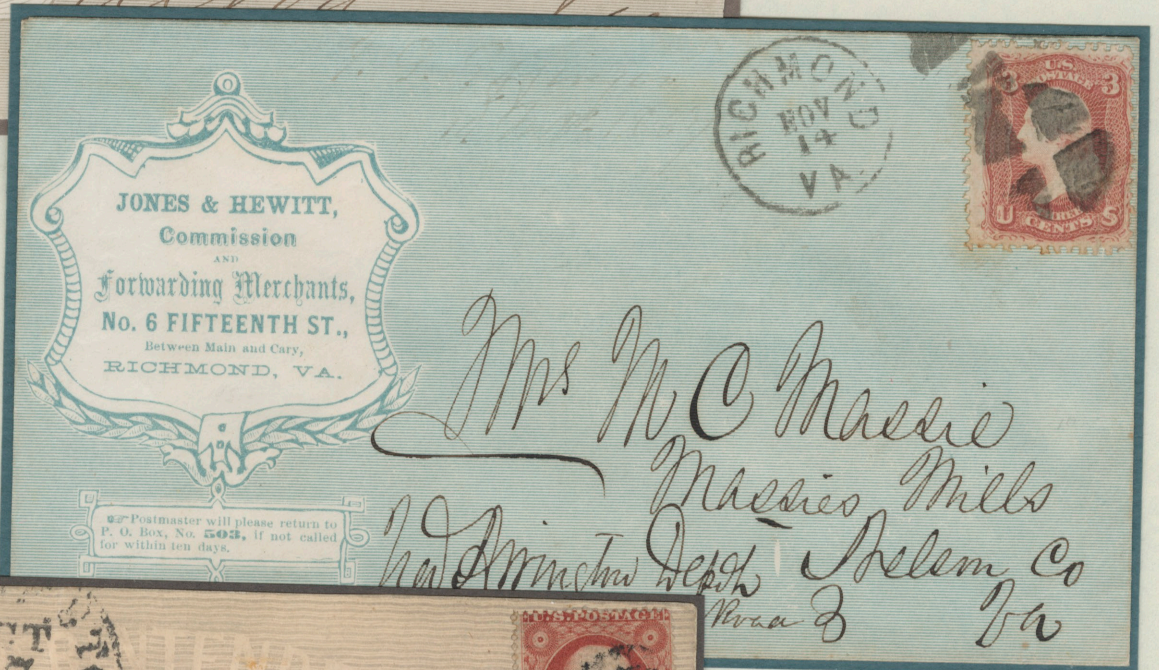 JONES & HEWITT,
Commission
AND
Forwarding Merchants,
No. 6 FIFTEENTH ST.,
Between Main and Cary,
RICHMOND, VA.
☞ Postmaster will please return to
P. O. Box, No. 503, if not called
for within ten days.
RICHMOND
NOV
14
VA.
3 U.S. 3
POSTAGE
U THREE S
CENTS
Mrs M C Massie
Massies Mills
Arrington Depot Nelson Co
Va
U.S. POSTAGE